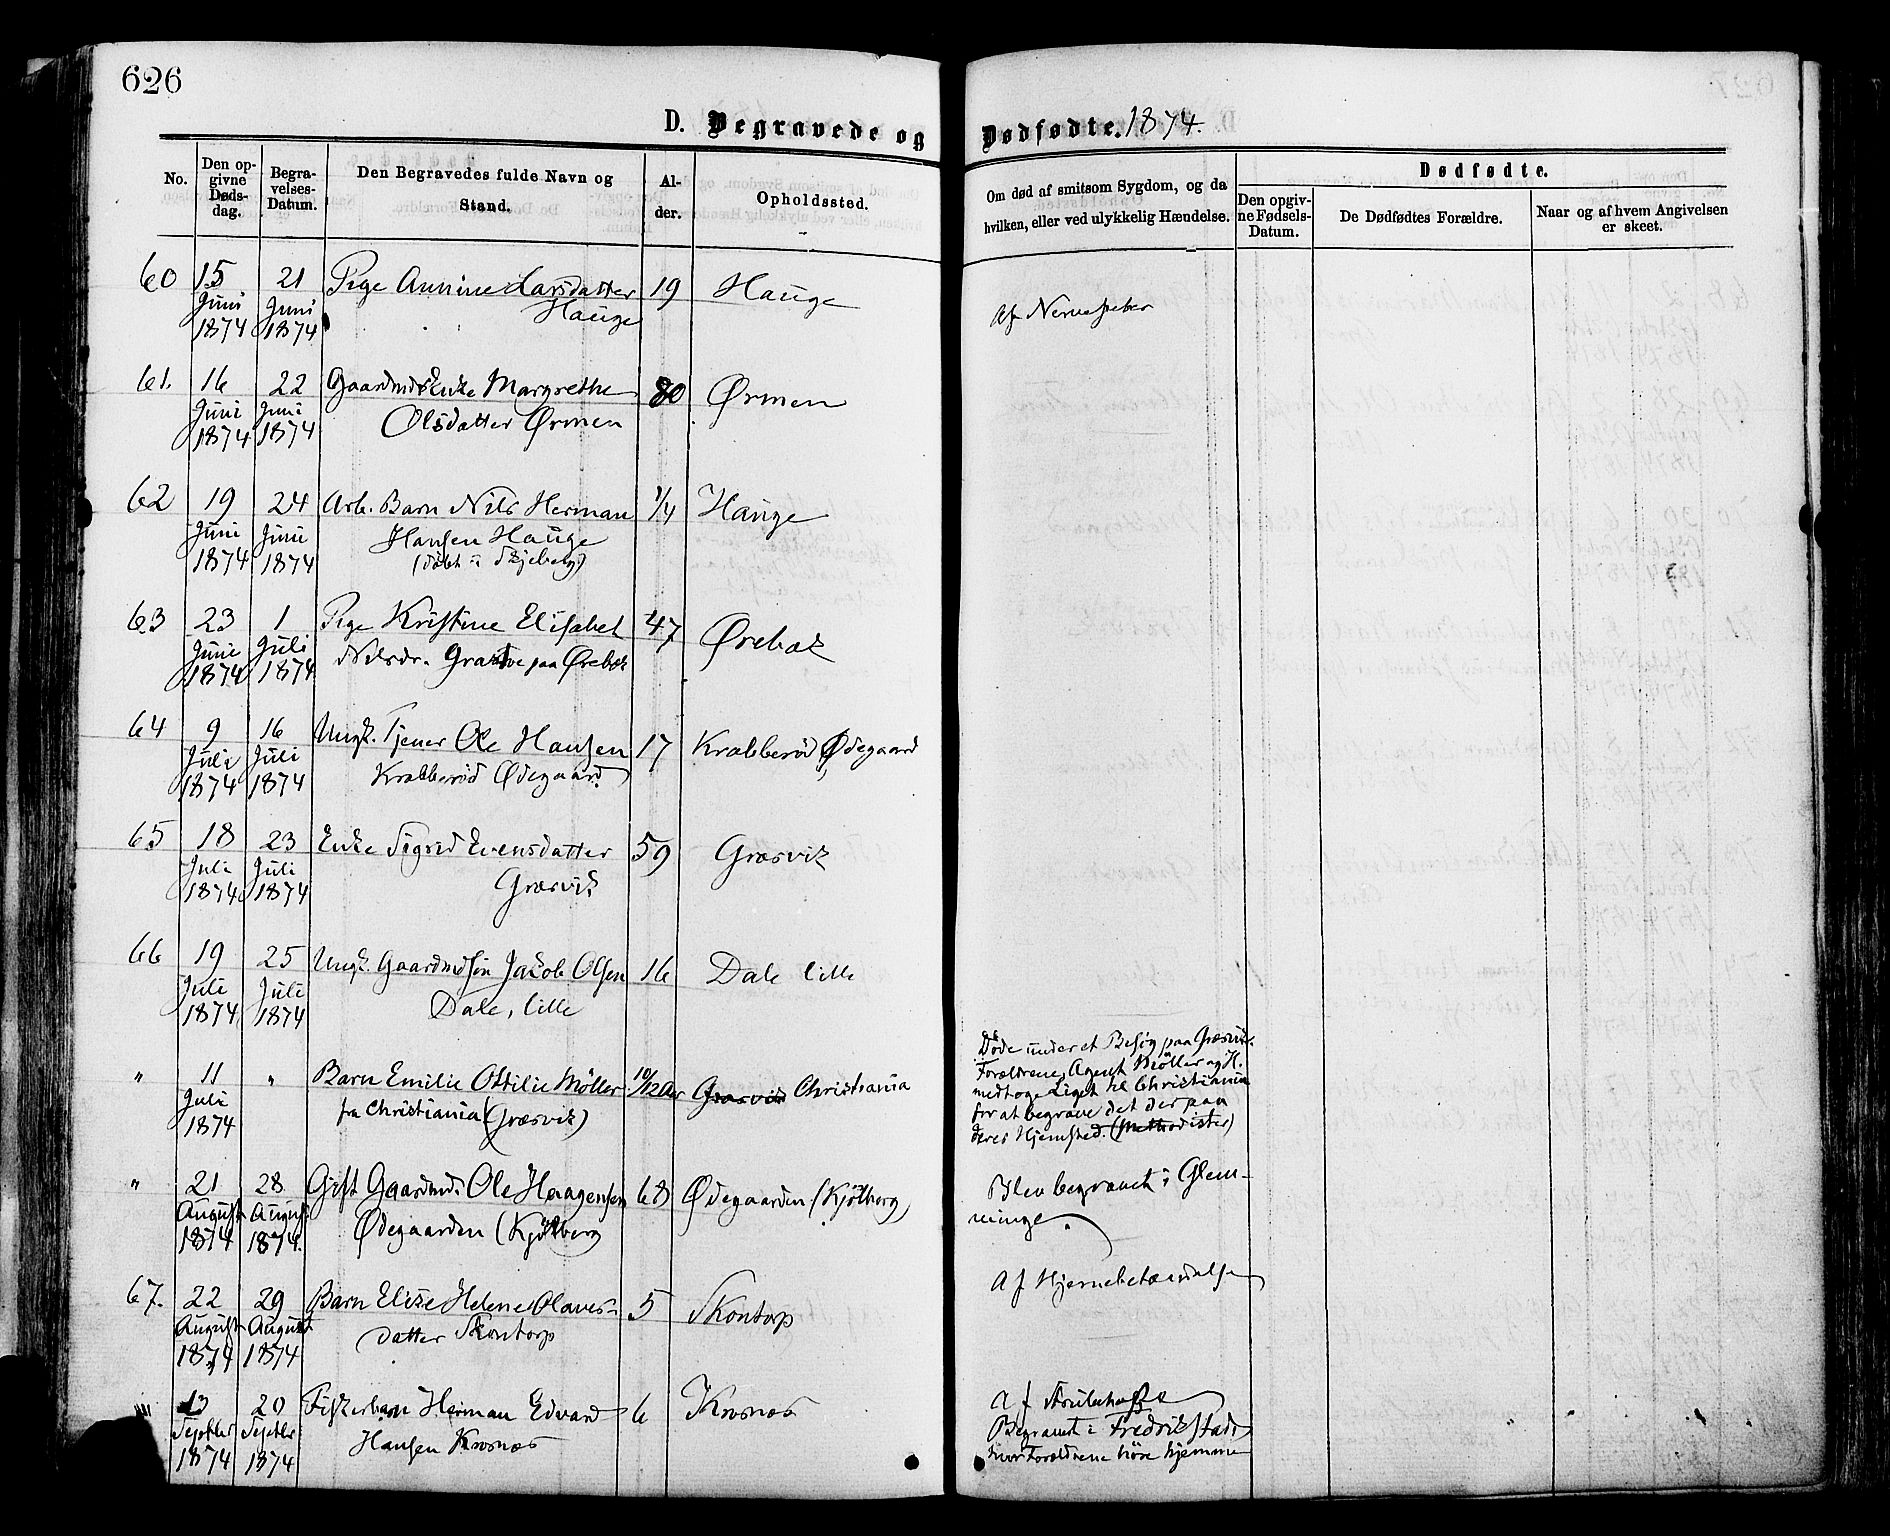 626
D. Begravede og Dødfødte. 1874.
No.
Den opgivne Dødsdag.
Begravelses-Datum.
Den Begravedes fulde Navn og Stand.
Alder.
Opholdssted.
Om død af smitsom Sygdom, og da hvilken, eller ved ulykkelig Hændelse.
Dødfødte.
Den opgivne Fødsels-Datum.
De Dødfødtes Forældre.
Naar og af hvem Angivelsen er skeet.
60 15 21 Pige Annine Larsdatter 19 Hauge
Juni Juni Hauge Af Nervefeber
1874 1874
61. 16 22 Gaardmds Enke Margrethe 80 Ørmen
Juni Juni Olsdatter Ørmen
1874 1874
62 19 24 Arb. Barn Nils Herman 1/4 Hauge
Juni Juni Hansen Hauge
1874 1874 (døbt i Skjeberg)
63 23 1 Pige Kristine Elisabet 47 Ørebæk
Juni Juli Nilsdr. paa Ørebæk
1874 1874
64 9 16 Ungk. Tjener Ole Hansen 17 Krabberød Ødegaard
Juli Juli Krabberød Ødegaard
1874 1874
65 18 23 Enke Sigrid Evensdatter 59 Græsvik
Juli Juli Græsvik
1874 1874
66 19 25 Ungk. Gaardmdsøn Jakob Olsen 16 Dale lille
Juli Juli Dale, lille
1874 1874
" 11 " Barn Emilie Ottilie Möller 10/12 Aar Græsvik Christiania
Juli fra Christiania (Græsvik)
1874
Døde under et Besøg paa Græsvik.
Forældrene, Agent Möller og H.
medtoge Liget til Christiania
for at begrave det der paa
deres Hjemsted. (Methodister)
" 21 28 Gift Gaardmd. Ole Haagensen 68 Ødegaarden (Kjölberg) Blev begravet i Glem-
August August Ødegaarden (Kjölberg minge.
1874 1874.
67. 22 29 Barn Elise Helene Olaves- 5 Skontorp Af Hjernebetændelse
August August datter Skontorp
1874 1874
13 20 Fiskerbarn Herman Edvard 6 Krosnæs Af Strubehoste
Septbr Septbr Hansen Krosnæs Begravet i Fredrikstad
1874 1874 hvor Forældrene höre hjemme